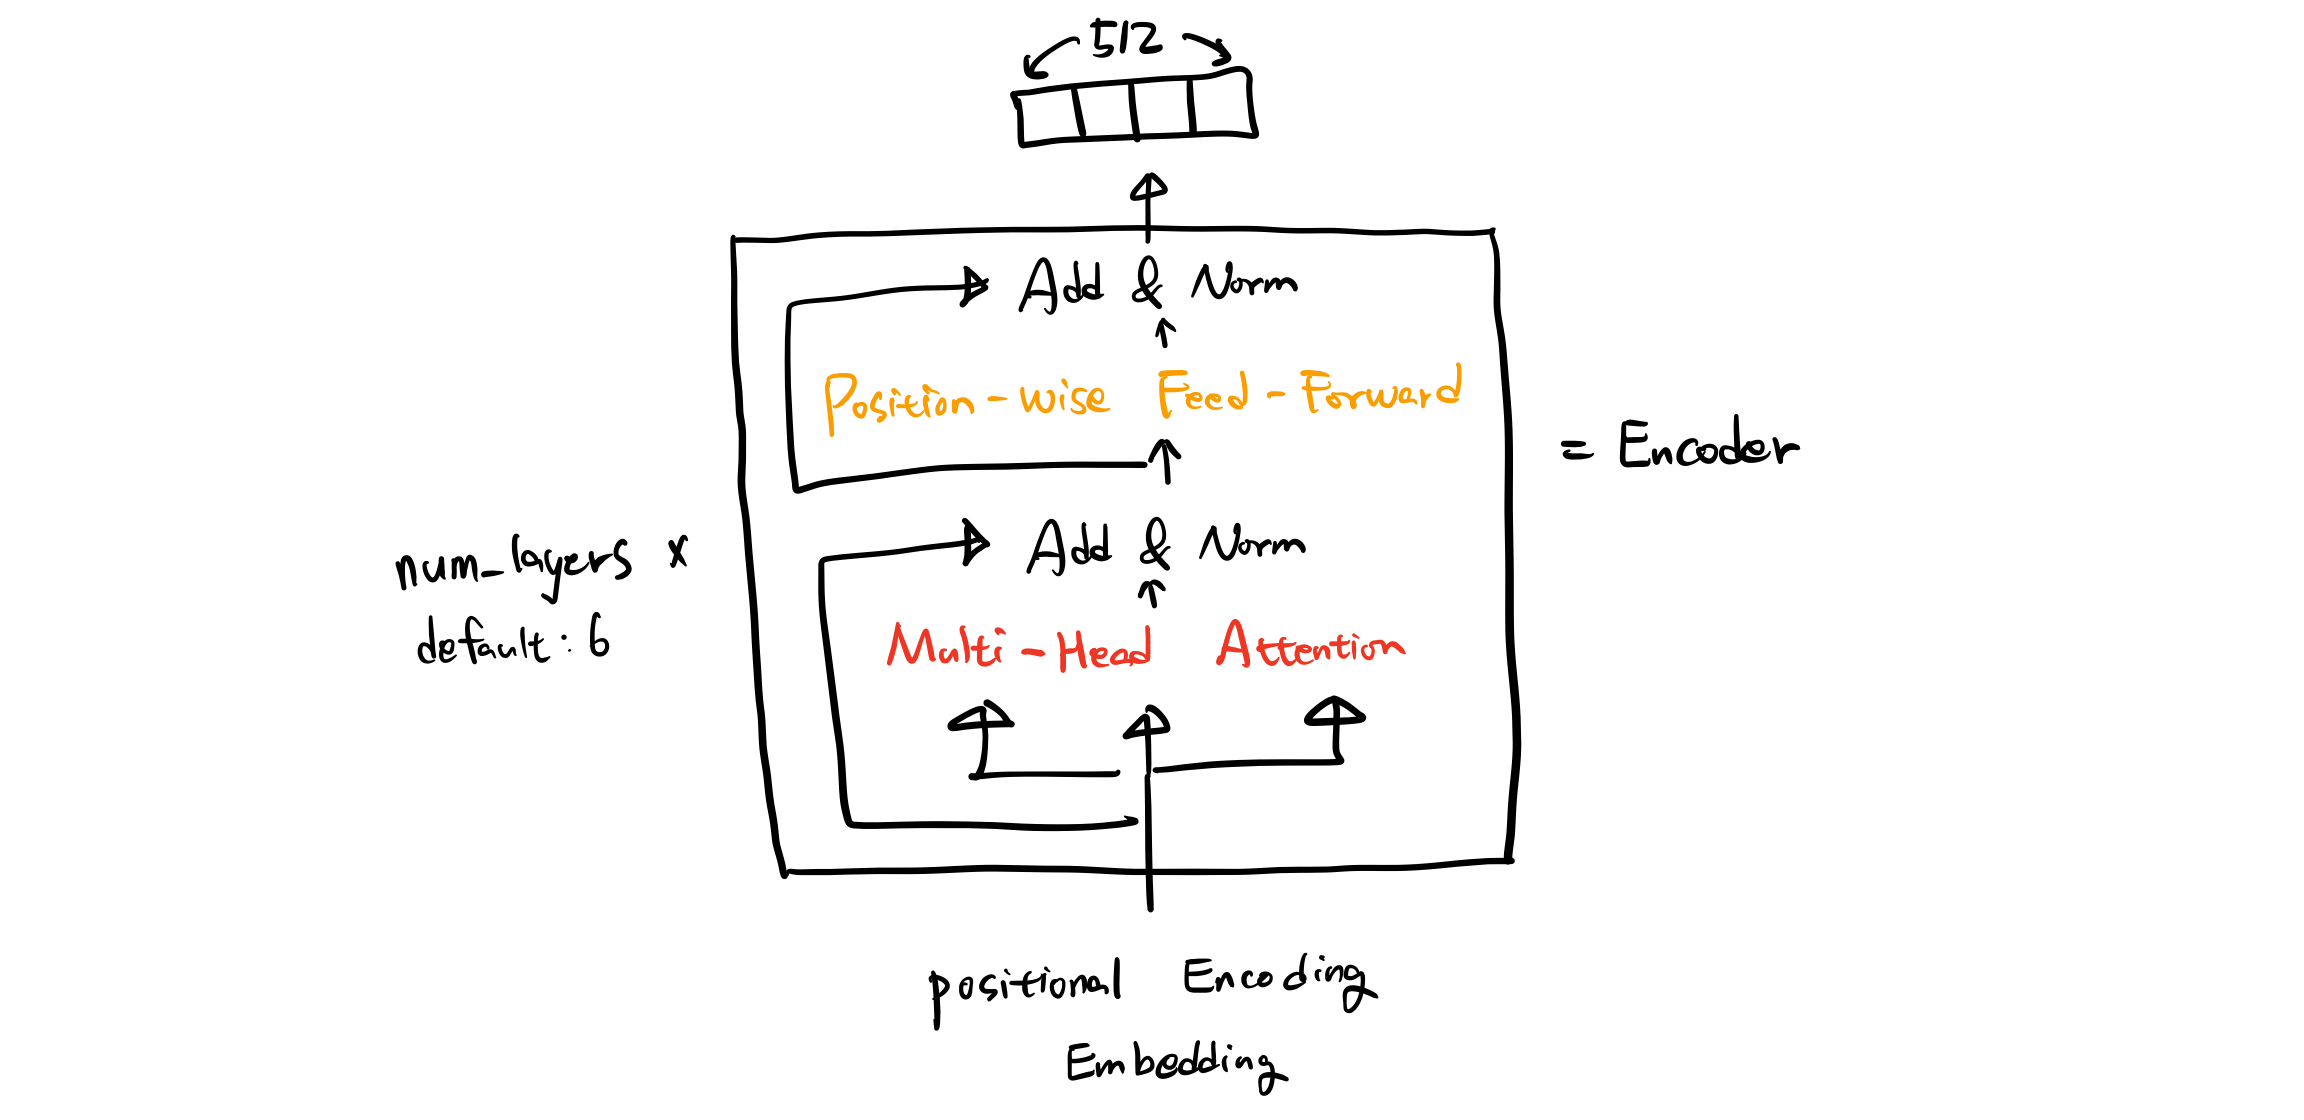 512
Add & Norm
Position-wise Feed-Forward
= Encoder
Add & Norm
num_layers x
default: 6
Multi-Head Attention
positional Encoding
Embedding